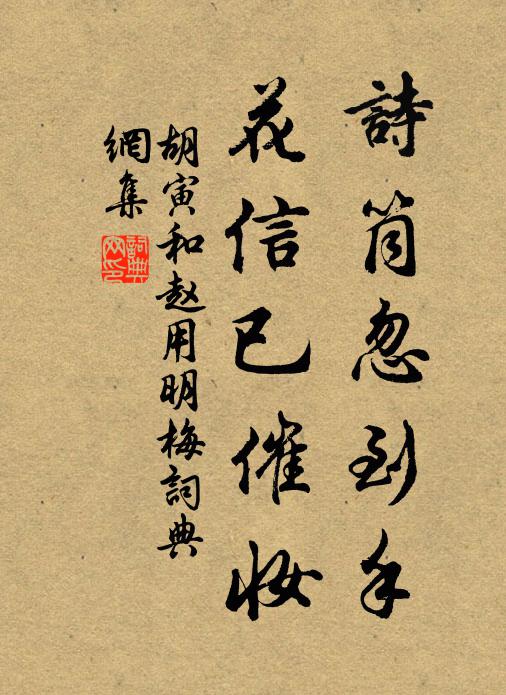 詩筒忽到手
花信已催妝
胡寅和赵用明梅詞典
網集
詞典網印